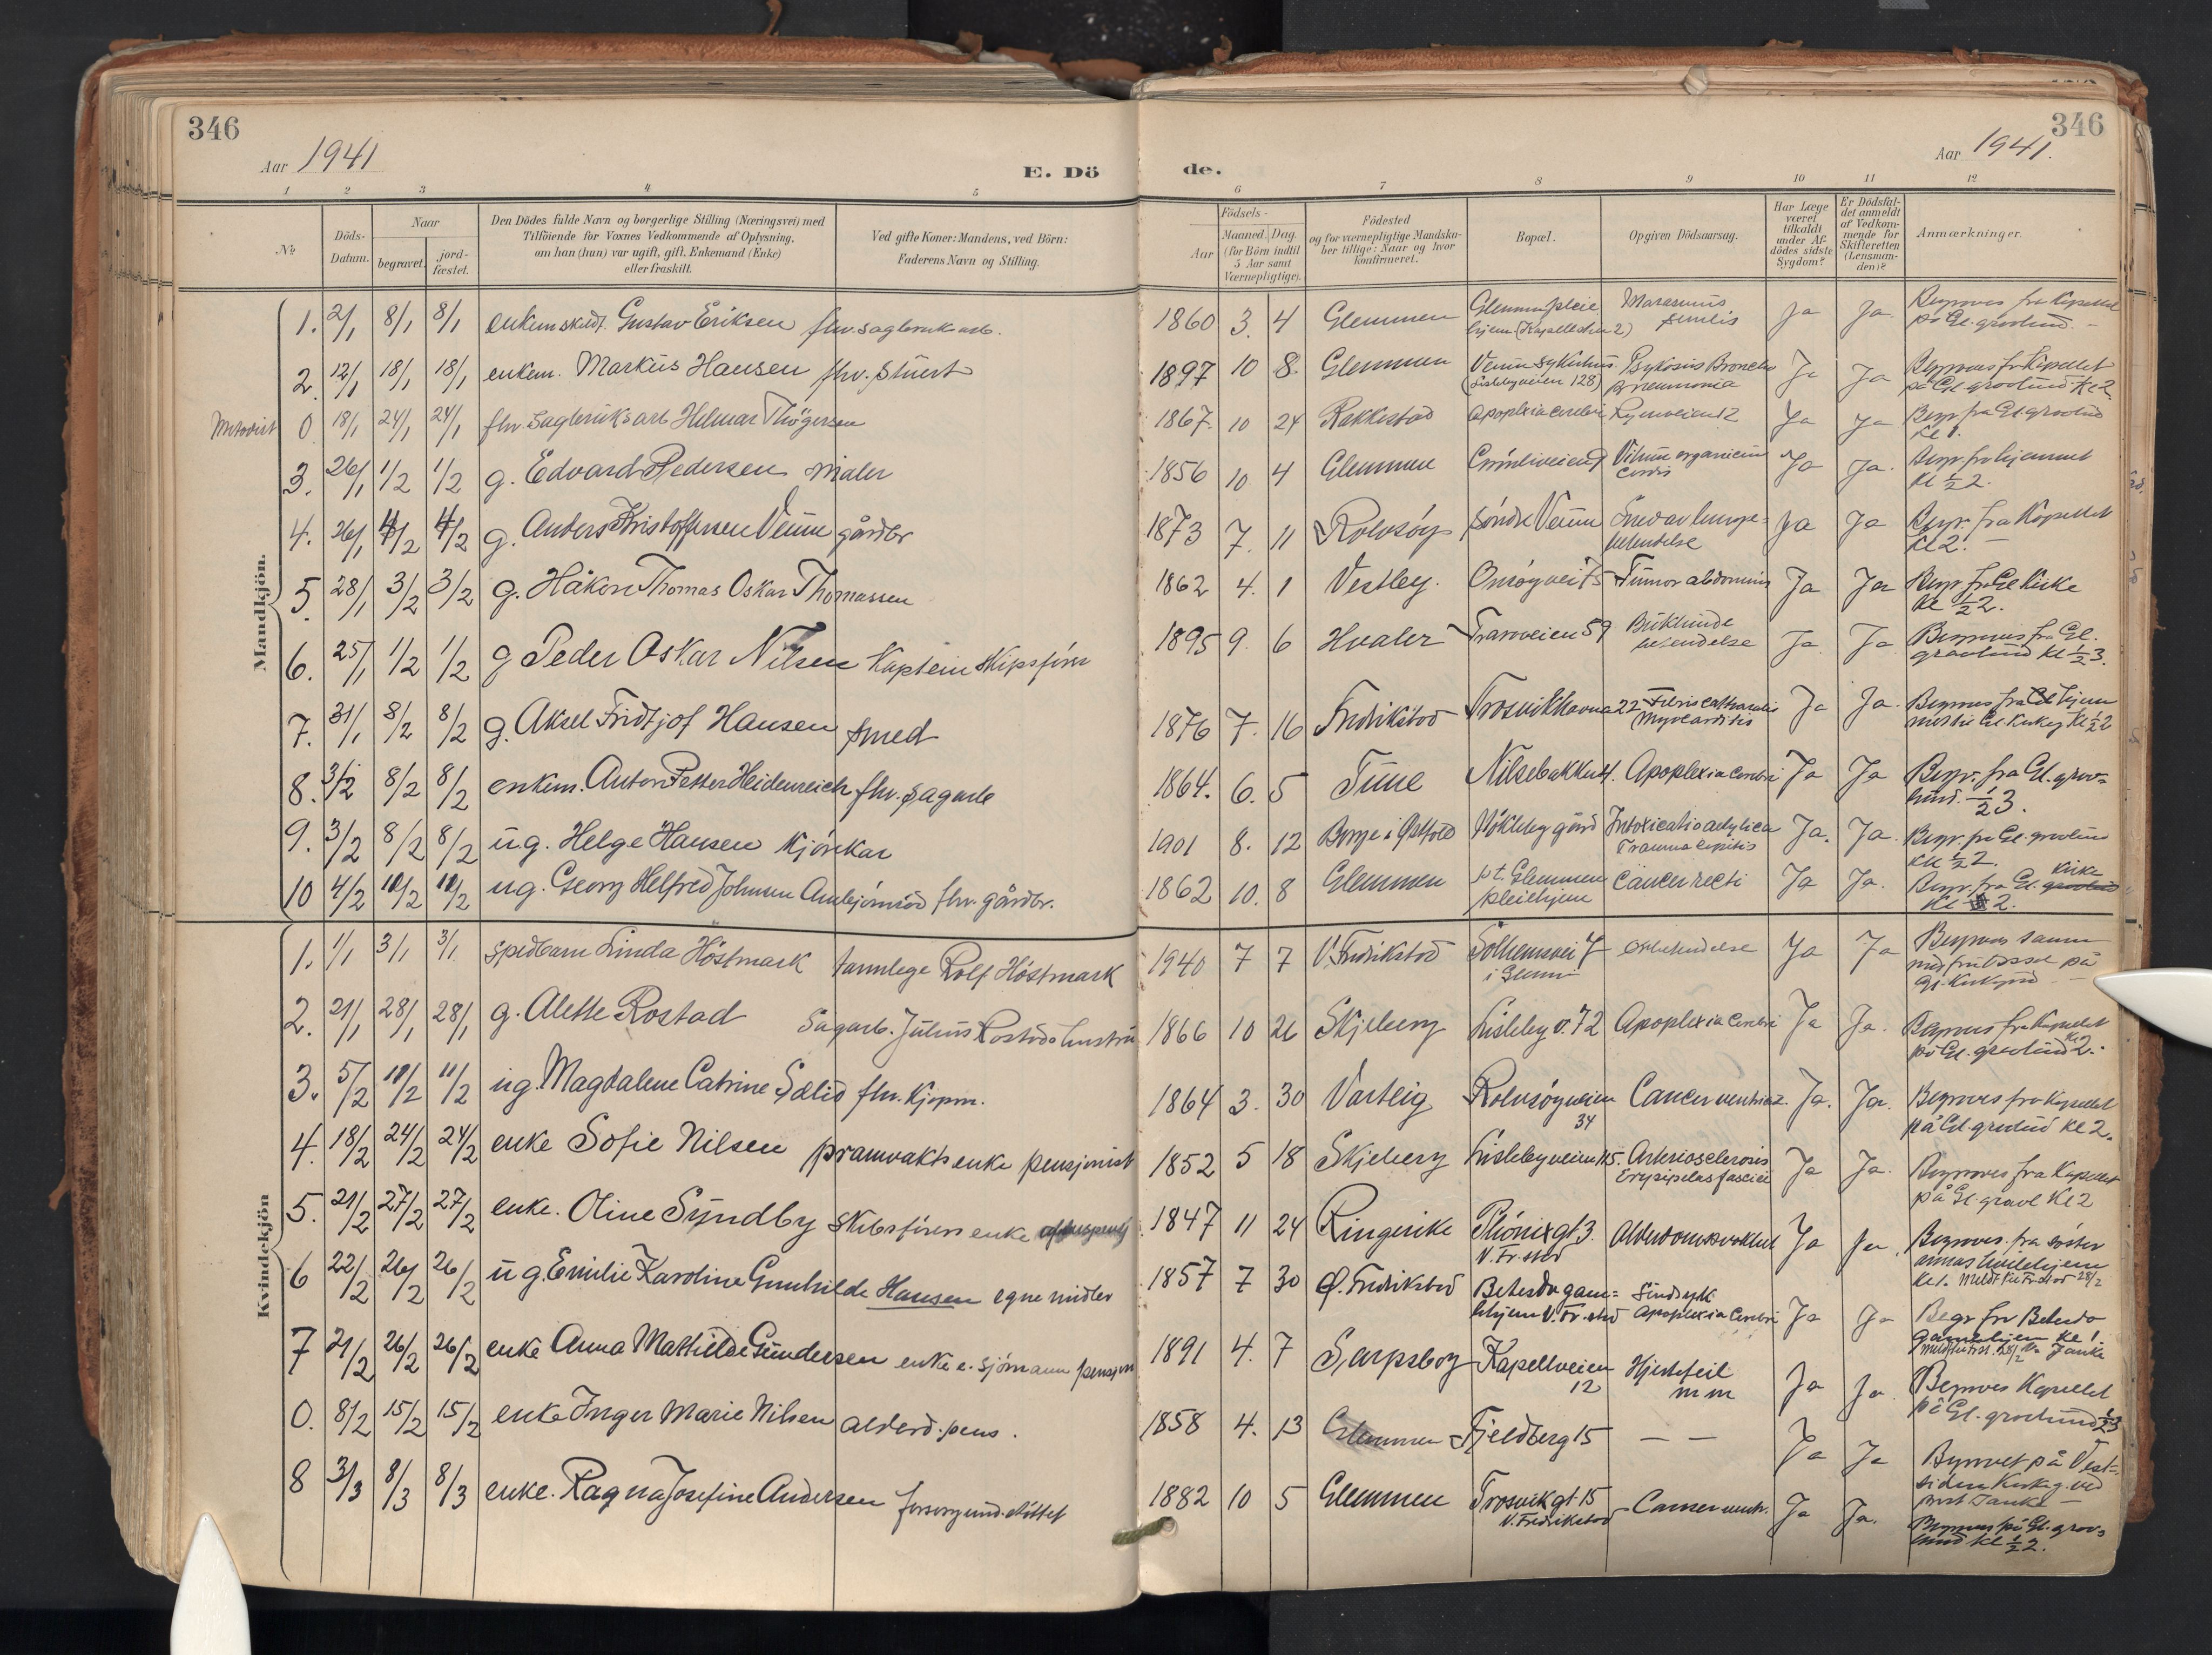 346
Aar 1941
E. Dö
1 2 3 4 5
№
Döds-
Datum.
Naar
begravet.
jord-
fæstet.
Den Dödes fulde Navn og borgerlige Stilling (Næringsvei) med
Tilföiende for Voxnes Vedkommende af Oplysning,
om han (hun) var ugift, gift, Enkemand (Enke)
eller fraskilt.
Ved gifte Koner: Mandens, ved Börn:
Faderens Navn og Stilling.
Mandkjön.
1. 2/1 8/1 8/1 enkem Gustav Eriksen fhv. sagbruksarb.
2. 12/1 18/1 18/1 enkem. Markus Hansen fhv. stuert
Metodist 0 18/1 24/1 24/1 fhv. sagbruksarb Hilmar Thögersen
3. 26/1 1/2 1/2 g. Edvard Pedersen maler
4. 26/1 4/2 4/2 g. Anders Kristoffersen Veum gårdbr
5. 28/1 3/2 3/2 g. Håkon Thomas Oskar Thomassen
6. 25/1 1/2 1/2 g Peder Oskar Nilsen Kaptein skipsförer
7. 31/1 8/2 8/2 g. Aksel Fridtjof Hansen smed
8. 3/2 8/2 8/2 enkem. Anton Petter Heidenreich fhv. sagarb
9. 3/2 8/2 8/2 ug. Helge Hansen kjörekar
10 4/2 10/2 10/2 ug. Georg Helfred Johnsen fhv. gårdbr.
Kvindekjön
1. 1/1 3/1 3/1 spedbarn Linda Höstmark tannlege Rolf Höstmark
2. 21/1 28/1 28/1 g. Alette Rostad Sagarb. Julius Rostads hustru
3. 5/2 11/2 11/2 ug. Magdalene Catrine Sælid fhv. kjøpm.
4. 18/2 24/2 24/2 enke Sofie Nilsen pramvakts enke pensjonist
5. 21/2 27/2 27/2 enke. Oline Syndby skibsförers enke
6 22/2 26/2 26/2 ug. Emilie Karoline Gunhilde Hansen egne midler
7 21/2 26/2 26/2 enke Anna Mathilde Gundersen enke e. sjömann pensjon
0. 8/2 15/2 15/2 enke Inger Marie Nilsen alderd. pens.
8 3/3 8/3 8/3 enke. Ragna Josefine Andersen forsorgsund.støttet
346
de.
Aar 1941.
6 7 8 9 10 11 12
Födsels-
Aar
Maaned. Dag.
(for Börn indtil
5 Aar samt
Værnepligtige).
Födested
og for værnepligtige Mandska-
ber tillige: Naar og hvor
konfirmeret.
Bopæl.
Opgiven Dödsaarsag.
Har Læge
været
tilkaldt
under Af-
dödes sidste
Sygdom?
Er Dödsfal-
det anmeldt
af Vedkom-
mende for
Skifteretten
(Lensman-
den)?
Anmærkninger.
1860 3. 4 Glemmen Glemmen pleie Marasmus Ja Ja. Begraves fra Kapellet
hjem senilis på Gl. gravlund.
1897 10 8. Glemmen Veum sykehus Broncho Ja Ja Begraves fr Kapellet
(Lislebyveien 128) pneumonia på Gl. gravlund Kl 2
1867. 10 24 Rakkestad apoplexia cerebri Lyenveien 12 Ja Ja Begr fra Gl. gravlund
Kl 1.
1856 10 4 Glemmen Vitium organicum Ja Ja. Begr. fra hjemmet
cordis Kl ½ 2.
1873 7. 11 Rolvsöy söndre Veum Ja Ja Begr. fra Kapellet
betendelse Kl 2. —
1862 4. 1 Vestby. Onsöyvei 75 Tumor abdominis Ja Ja Begr. fr Gl Kirke
Kl ½ 2.
1895 9. 6 Hvaler Traraveien 59 Bukhinde Ja Ja Begraves fra Gl.
betendelse gravlund Kl ½ 3.
1876 7. 16 Fredrikstad Trosvikhavna 22 Ja Ja. Begraves fra hjem
Myocarditis Kl ½ 2
1864. 6. 5 Tune Nilsebakken 4. Apoplexia cerebri Ja Ja Begr. fra Gl. grav-
lund. ½ 3.
1901 8. 12 Borge i Østfold Nökleby gård Intoxicatio Ja. Ja. Begr. fra Gl. gravlund
Trauma capitis Kl ½ 2.
1862 10. 8 Glemmen pt. Glemmen cancer recti Ja Ja. Begr. fra Gl. kirke
pleiehjem Kl 2.
1940 7 7 V. Fredrikstad Solheimsvei 7 Ja Ja Begraves samm
i Glemm på
Gl. Kirkegård
1866 10 26 Skjeberg Lisleby v. 72 Apoplexia cerebri Ja Ja. Begraves fra Kapellet
på Gl. gravlund Kl 2.
1864 3. 30 Varteig Rolvsöyveien Cancer ventric. Ja. Ja. Begraves fra Kapellet
34 på Gl. gravlund Kl 2.
1852 5 18 Skjeberg Lislebyveien 115. Arteriosclerosis Ja Ja. Begraves fra Kapellet
Erysipelas fasciei på Gl. gravl Kl 2
1847 11 24 Ringerike Phönixgt 3. Alderdomssvakhet Ja Ja. Begraves. fra söster
V. Fr. stad annas hvilehjem
Kl 1. Meldt til Fr.stad 28/2
1857 7 30 Ø. Fredrikstad Betesda gam= Sindsyk
lehjem V. Fr. stad Apoplexia cerebri Ja Ja Begr fra Betesda
gamlehjem Kl 1.
1891 4. 7 Sarpsborg Kapellveien Hjertefeil Ja Ja Begraves Kapellet
12 m m på Gl. gravlund ½ 3
1858 4. 13 Glemmen Fjeldberg 15 — — Ja Ja Begravet på Vest=
siden Kirkeg. ved
prest Janke —
1882 10 5 Glemmen Trosvikgt. 15 Cancer ventr. Ja Ja. Begraves på Gl. grav=
V. Fredrikstad lund Kl ½ 2.